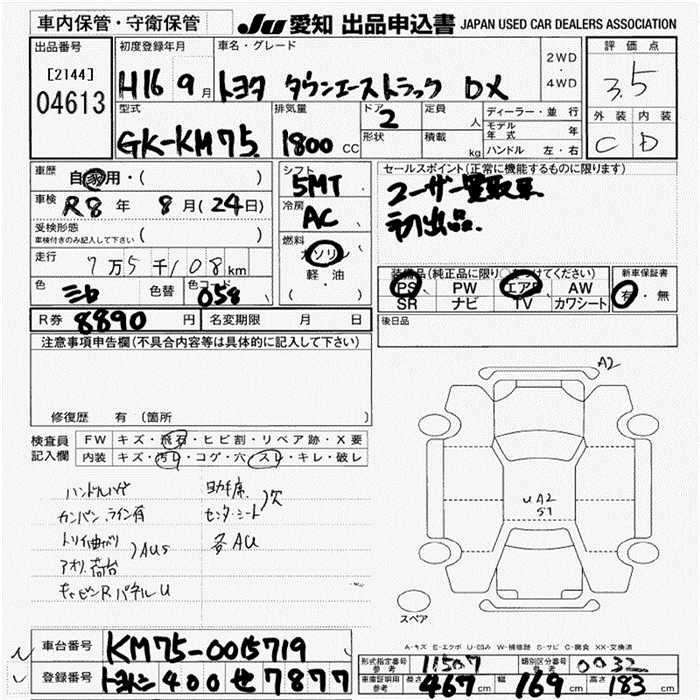 車内保管・守衛保管 JU 愛知 出品申込書 JAPAN USED CAR DEALERS ASSOCIATION
出品番号 初度登録年月 車名・グレード 評価点
[2144] 04613 H16 9月 トヨタ タウンエーストラック DX 2WD ・ 4WD 3.5
型式 排気量 ドア 定員 ディーラー・並行 外装 内装
GK-KM75 1800 CC 2 人 モデル年式 年 C D
形状 積載 kg ハンドル 左・右
車歴 自家用・( ) シフト セールスポイント(正常に機能するものに限ります)
5MT ユーザー買取車
車検 R8年 8月(24日) 冷房 初出品.
受検形態 AC
車検付きのみ記入して下さい ( )
走行 7万5千108km 燃料 ガソリン
軽・油 装備品(純正品に限り○をつけてください) 新車保証書
色 色替 色コード 058 ( ・ ) PS PW エアB AW 有・無
SR ナビ TV カワシート
R券 8890円 名変期限 月 日 後日品
注意事項申告欄(不具合内容等は具体的に記入して下さい)
A2
修復歴 有(箇所
検査員 FW キズ・飛石・ヒビ割・リペア跡・X要
記入欄 内装 キズ・汚レ・コゲ・穴・スレ・キレ・破レ
助手席
センターシート 穴
カンバン、ライン有
各AU
アオリ、荷台 AUS
キャビンRパネルU
UA2
S1
スペア
A-キズ E-エクボ U-凹み W-補修跡 S-サビ C-腐食 XX-交換済
車台番号 KM75-0015719 形式指定番号 参考 11507 類別区分番号 参考 0032
登録番号 400 せ 7877 車庫証明用 参考 長さ 467cm 幅 169cm 高さ 183cm